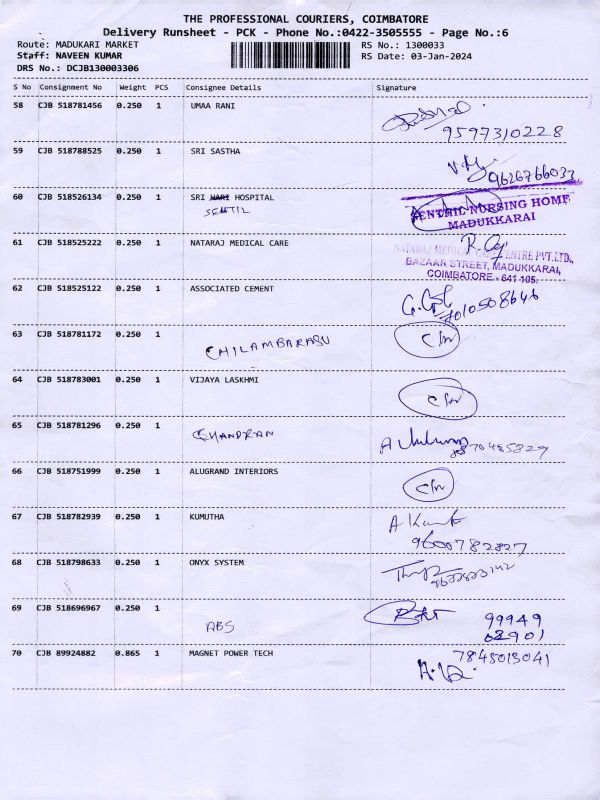 THE PROFESSIONAL COURIERS, COIMBATORE
Delivery Runsheet - PCK - Phone No.:0422-3505555 - Page No.:6
Route: MADUKARI MARKET RS No.: 1300033
Staff: NAVEEN KUMAR RS Date: 03-Jan-2024
DRS No.: DCJB130003306
S No Consignment No Weight PCS Consignee Details Signature
58 CJB 518781456 0.250 1 UMAA RANI
9597310228
59 CJB 518788525 0.250 1 SRI SASTHA
9626766033
60 CJB 518526134 0.250 1 SRI HARI HOSPITAL
SENTIL
SENTHIL NURSING HOME
MADUKKARAI
61 CJB 518525222 0.250 1 NATARAJ MEDICAL CARE
NATARAJ MEDICAL CARE CENTRE PVT.LTD.,
BAZAAR STREET, MADUKKARAI,
COIMBATORE - 641 105.
62 CJB 518525122 0.250 1 ASSOCIATED CEMENT
7010508646
63 CJB 518781172 0.250 1
CHILAMBARASU
64 CJB 518783001 0.250 1 VIJAYA LASKHMI
65 CJB 518781296 0.250 1
CHANDRAN
8870485829
66 CJB 518751999 0.250 1 ALUGRAND INTERIORS
67 CJB 518782939 0.250 1 KUMUTHA
9600782827
68 CJB 518798633 0.250 1 ONYX SYSTEM
69 CJB 518696967 0.250 1
ABS
99949
68901
70 CJB 89924882 0.865 1 MAGNET POWER TECH
7845013041